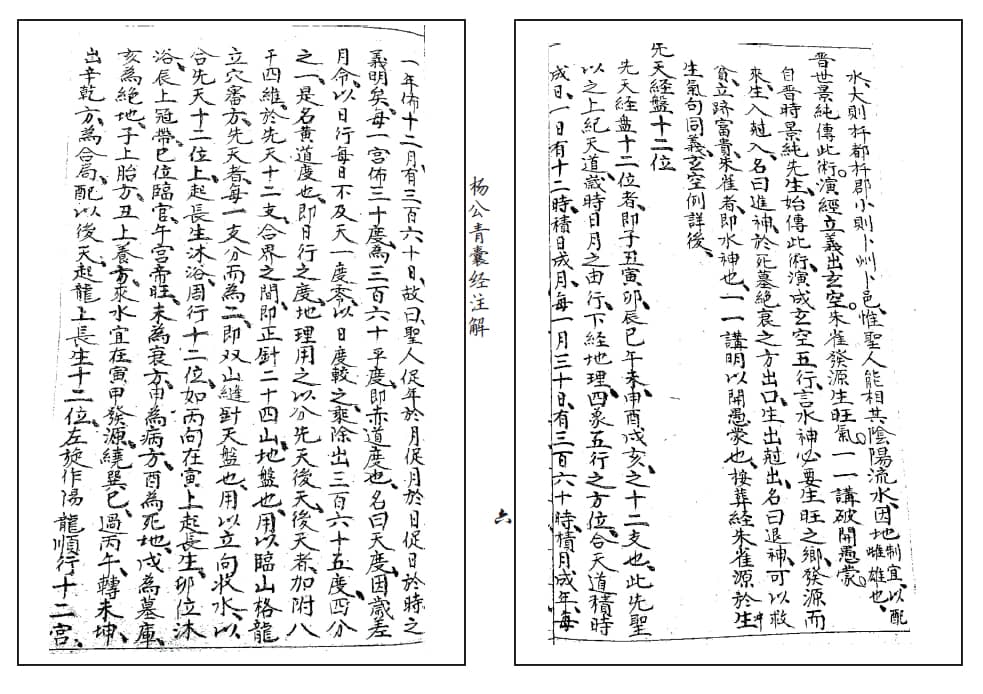 水、大則扦都扦郡、小則卜州卜邑、惟聖人能相其陰陽流水、因地制宜、以配雌雄也、
晋世景純傳此術、演經立義出玄空。朱雀發源生旺氣。一一講破開愚蒙。
自晋時景純先生、始傳此術、演成玄空五行、言水神必要生旺之鄉、發源而
來、生入尅入、名曰進神、於死墓絕衰之方出口、生出尅出、名曰退神、可以救
貧、立躋富貴、朱雀者、即水神也、一一講明以開愚蒙也、按葬經朱雀源於生
生氣句同義、玄空例詳後、
先天経盤十二位
先天経盘十二位者、即子丑寅卯、辰巳午未、申酉戌亥、之十二支也、此先聖
以之上紀天道、歲時日月之由行、下経地理、四象五行之方位、合天道積時
成日、一日有十二時、積日成月、每一月三十日、有三百六十時、積月成年、每
杨公青囊经注解
六
一年佈十二月、有三百六十日、故曰聖人促年於月、促月於日、促日於時之
義明矣、每一宮佈三十度、為三百六十平度、即赤道度也、名曰天度、因歲差
月令、以日行每日不及天一度零、以日度較之、乘除出三百六十五度、四分
之一、是名黄道度也、即日行之度、地理用之以分先天後天、後天者、加附八
干四維、於先天十二支、合界之間、即正針二十四山、地盤也、用以臨山格龍
立穴審方、先天者每一支分而為二、即双山縫針天盤也、用以立向收水、以
合先天十二位上起長生沐浴、周行十二位、如丙向在寅上起長生、卯位沐
浴、辰上冠帶、巳位臨官、午宮帝旺、未為衰方、申為病方、酉為死地、戌為墓庫、
亥為絕地、子上胎方、丑上養方、來水宜在寅甲發源、繞巽巳、過丙午、轉未坤、
出辛乾方、為合局、配以後天起龍上長生十二位、左旋作陽龍順行十二宮、